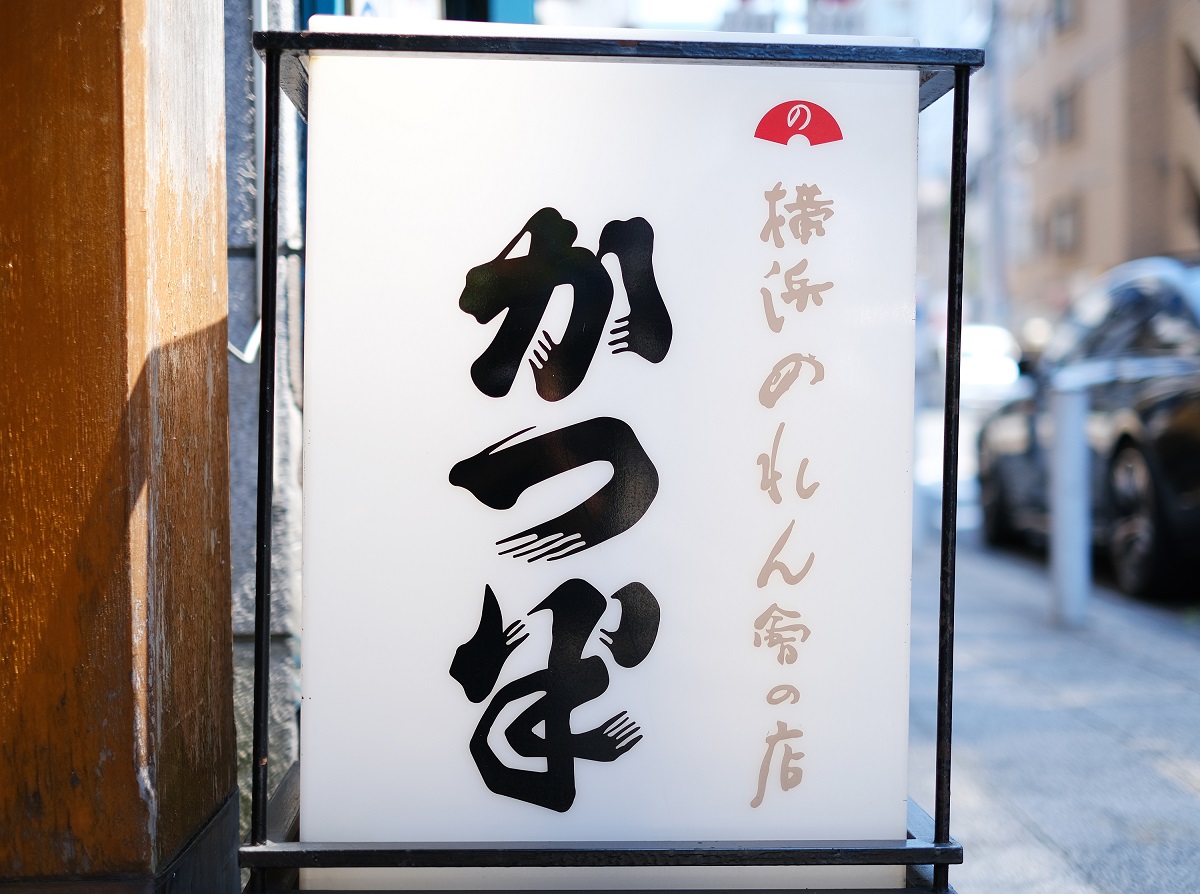 の
横浜のれん會の店
かつ半